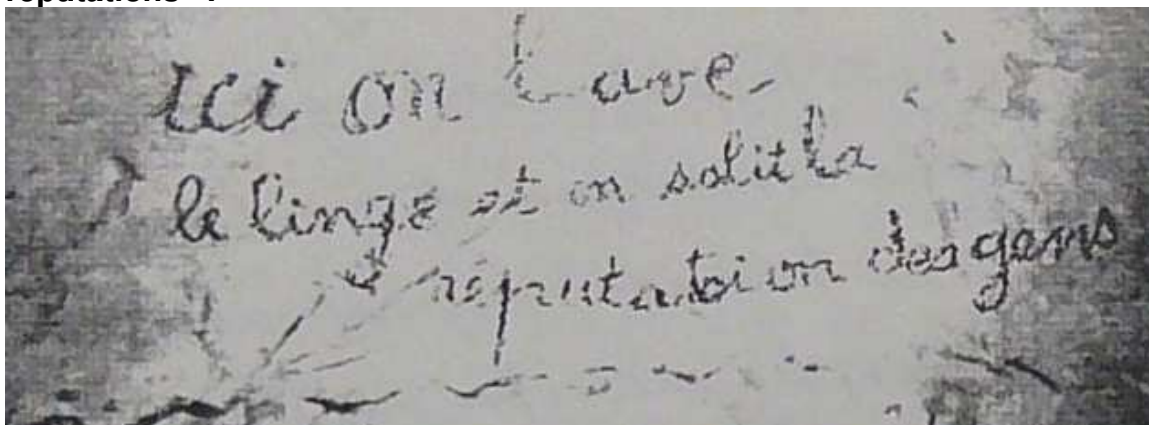 ici on Lave
le linge et on salit la
réputation des gens